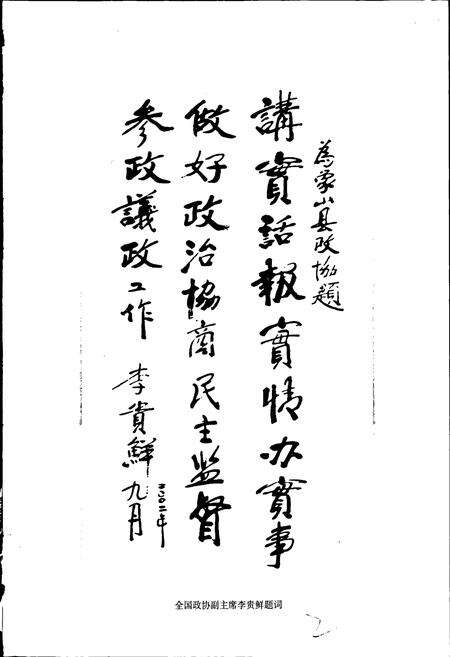 為象山县政协題
講實話報實情办實事
做好政治協商民主监督
参政議政工作
李貴鮮
二〇〇二年
九月
全国政协副主席李贵鲜题词